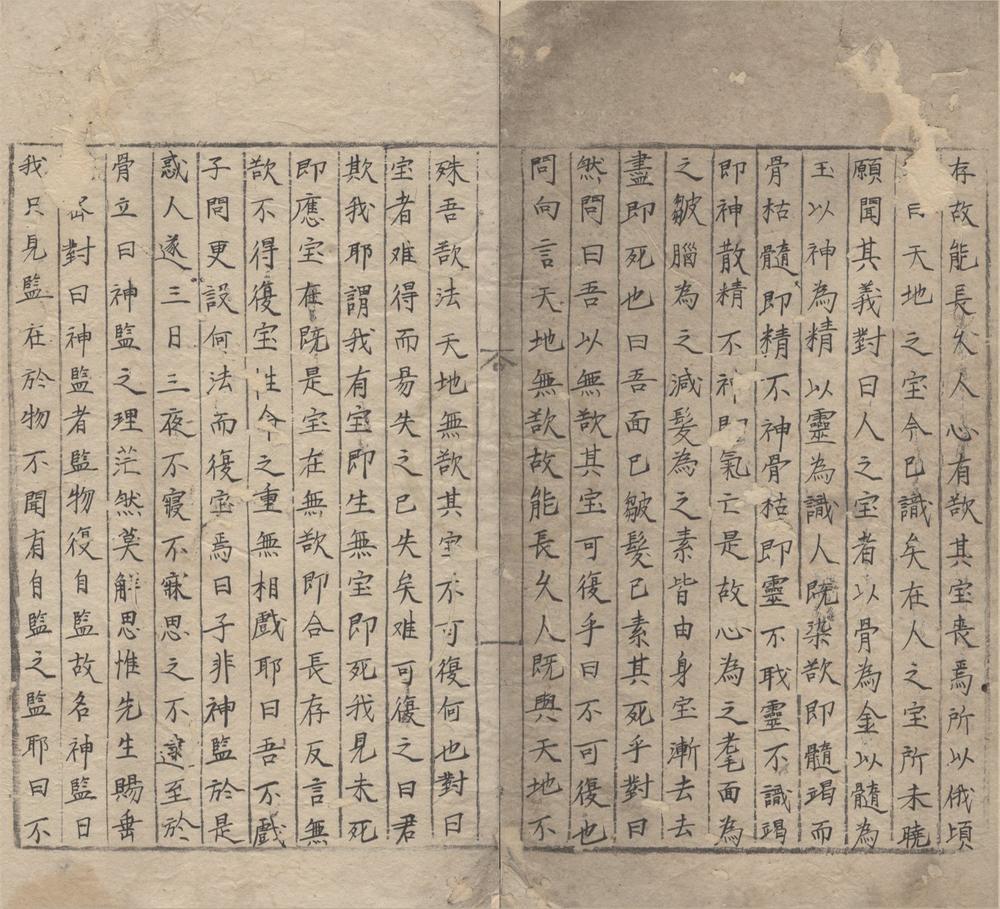 存故能長久人心有欲其宝丧焉所以俄頃
曰天地之宝今已識矣在人之宝所未曉
願聞其義對曰人之宝者以骨為金以髓為
玉以神為精以靈為識人既染欲即髓竭而
骨枯髓即精不神骨枯即靈不戢靈不識竭
即神散精不神即氣亡是故心為之耄面為
之皺腦為之減髮為之素皆由身宝漸去去
盡即死也曰吾面已皺髮已素其死乎對曰
然問曰吾以無欲其宝可復乎曰不可復也
問向言天地無欲故能長久人既與天地不
殊吾欲法天地無欲其宝不可復何也對曰
宝者难得而昜失之已失矣难可復之曰君
欺我耶謂我有宝即生無宝即死我見未死
即應宝在既是宝在無欲即合長存反言無
欲不得復宝性令之重無相戲耶曰吾不戲
子問更設何法而復宝焉曰子非神監於是
惑人遂三日三夜不寝不寐思之不逮至於
骨立曰神監之理茫然莫解思惟先生賜垂
對曰神監者監物復自監故名神監曰
我只見監在於物不聞有自監之監耶曰不